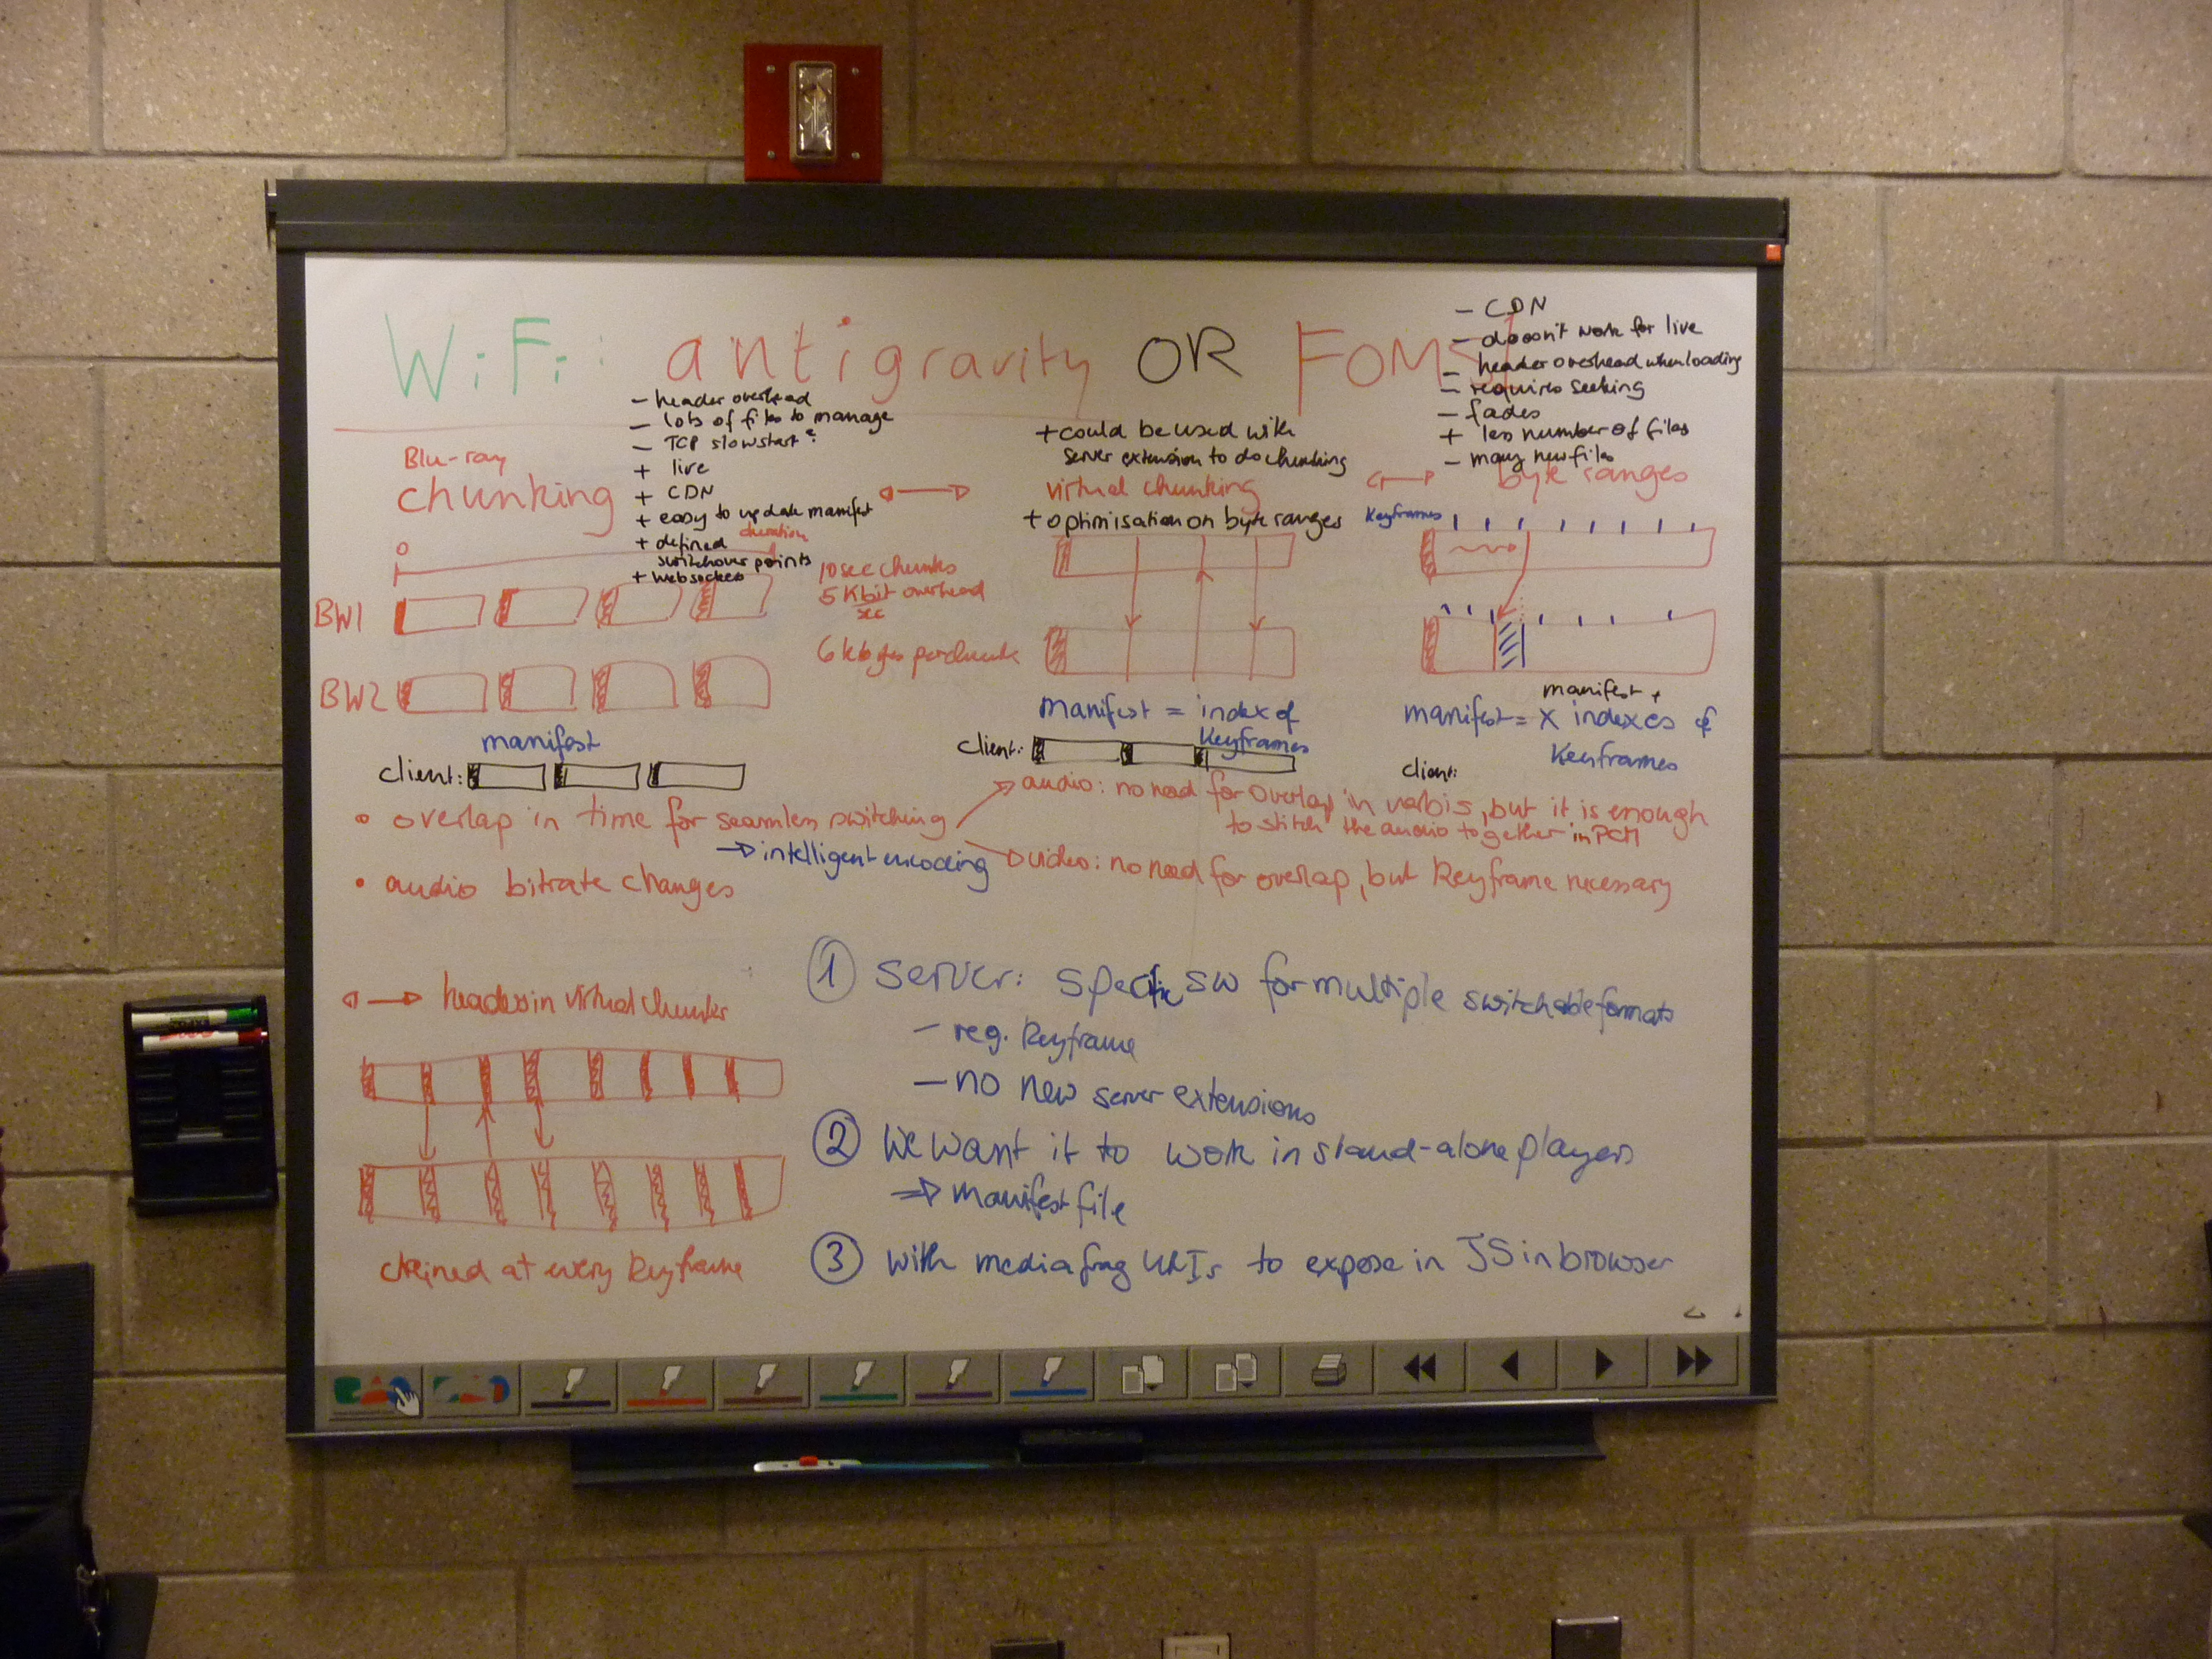 WiFi: antigravity OR FOMS
- header overhead
- lots of files to manage
- TCP slowstart?
+ live
+ CDN
+ easy to update manifest
+ defined
switchover points
+ websockets
duration
Blu-ray
chunking
0
BW1
BW2
10 sec chunks
5 Kbit overhead
sec
6 kbytes per chunk
manifest
client:
+ could be used with
server extension to do chunking
virtual chunking
+ optimisation on byte ranges
manifest = index of
Keyframes
client:
- CDN
- doesn't work for live
- header overhead when loading
- requires seeking
- fades
+ less number of files
- many new files
byte ranges
Keyframes
manifest +
manifest = X indexes of
Keyframes
client:
• overlap in time for seamless switching
→ intelligent encoding
audio: no need for overlap in vorbis, but it is enough
to stitch the audio together in PCM
video: no need for overlap, but Keyframe necessary
• audio bitrate changes
headers in virtual chunks
chained at every Keyframe
1 server: specific SW for multiple switchable formats
- reg. Keyframe
- no new server extensions
2 We want it to work in stand-alone players
⇒ manifest file
3 with media frag URIs to expose in JS in browser